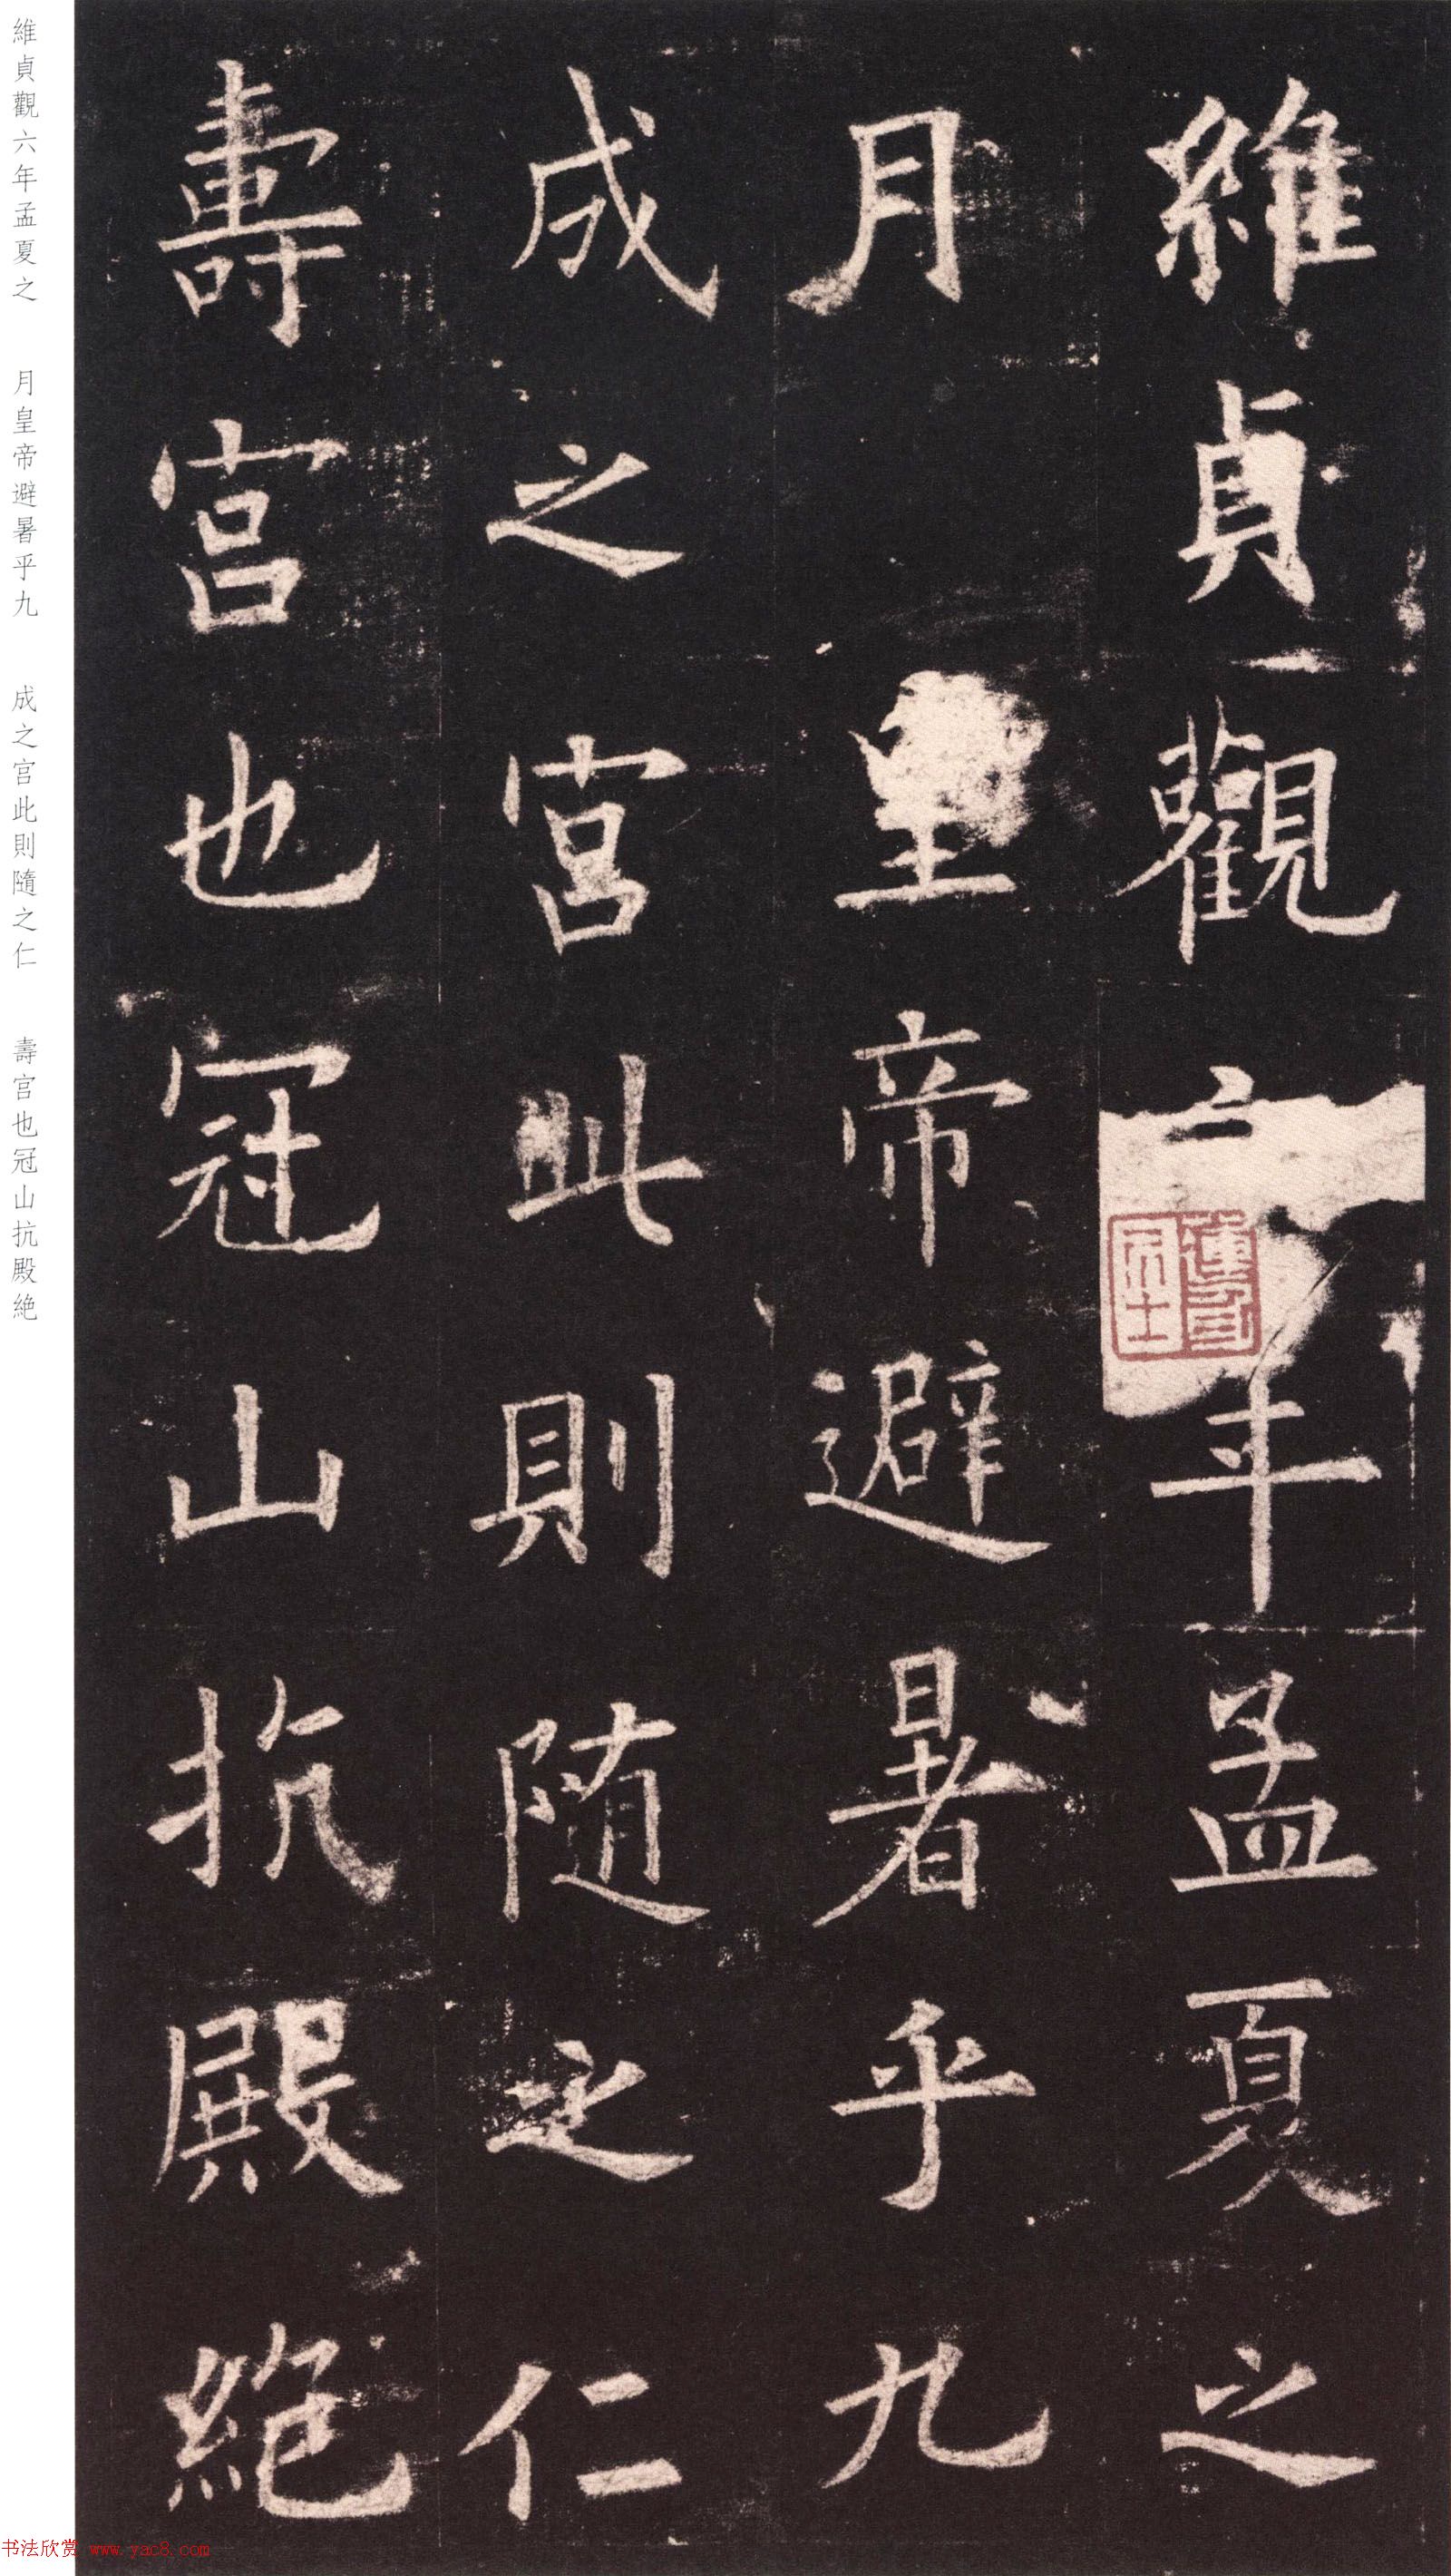 維貞觀六年孟夏之
月皇帝避暑乎九
成之宮此則隨之仁
壽宮也冠山抗殿絶
維貞觀六年孟夏之 月皇帝避暑乎九 成之宮此則隨之仁 壽宮也冠山抗殿絶
书法欣赏 www.yac8.com